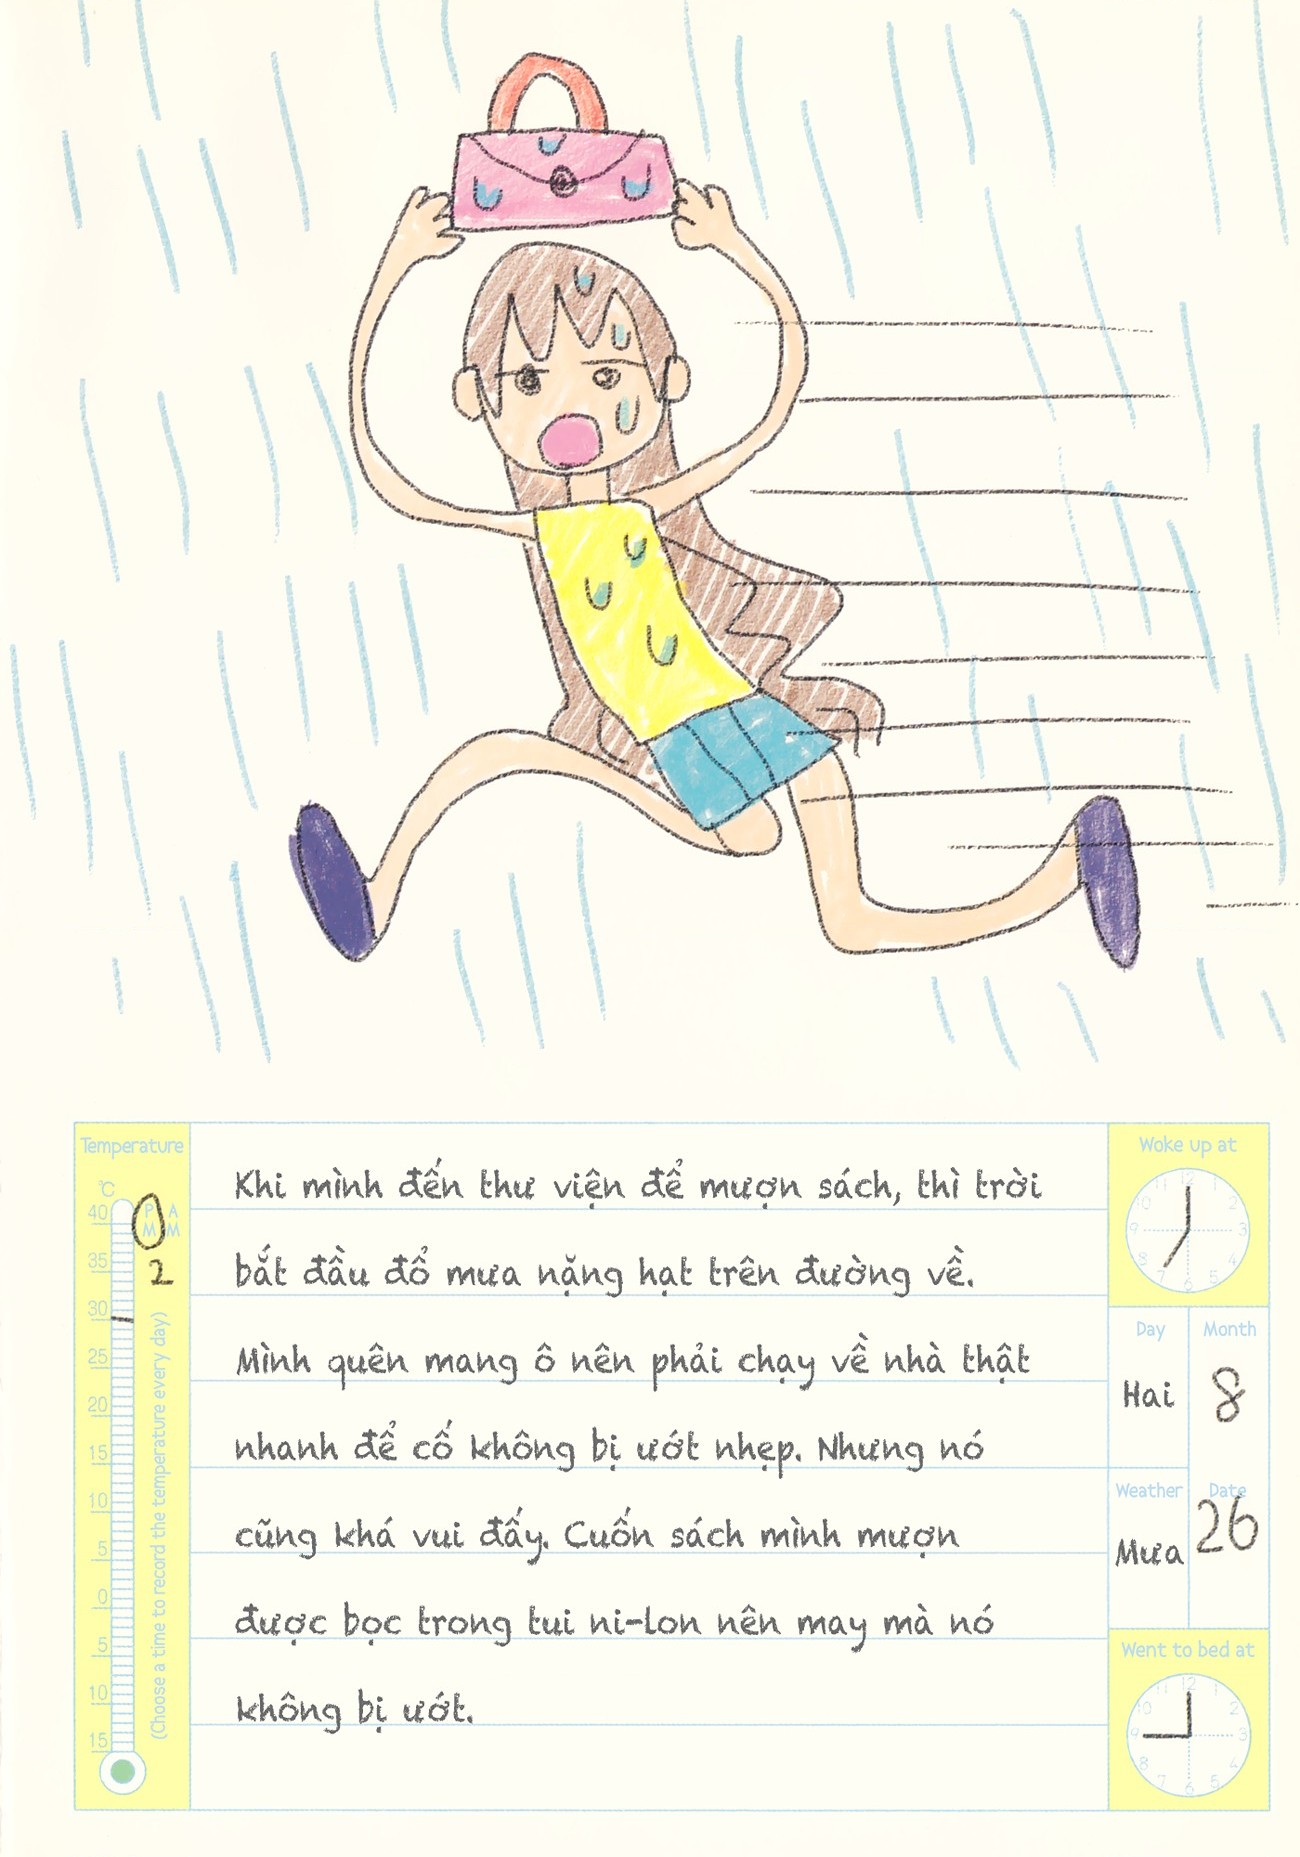 Temperature
℃
40
35
30
25
20
15
10
5
0
5
10
15
PM AM
2
(Choose a time to record the temperature every day)
Khi mình đến thư viện để mượn sách, thì trời
bắt đầu đổ mưa nặng hạt trên đường về.
Mình quên mang ô nên phải chạy về nhà thật
nhanh để cố không bị ướt nhẹp. Nhưng nó
cũng khá vui đấy. Cuốn sách mình mượn
được bọc trong tui ni-lon nên may mà nó
không bị ướt.
Woke up at
12 1 2 3 4 5 6 7 8 9 10 11
Day
Hai
Month
8
Weather
Mưa
Date
26
Went to bed at
12 1 2 3 4 5 6 7 8 9 10 11